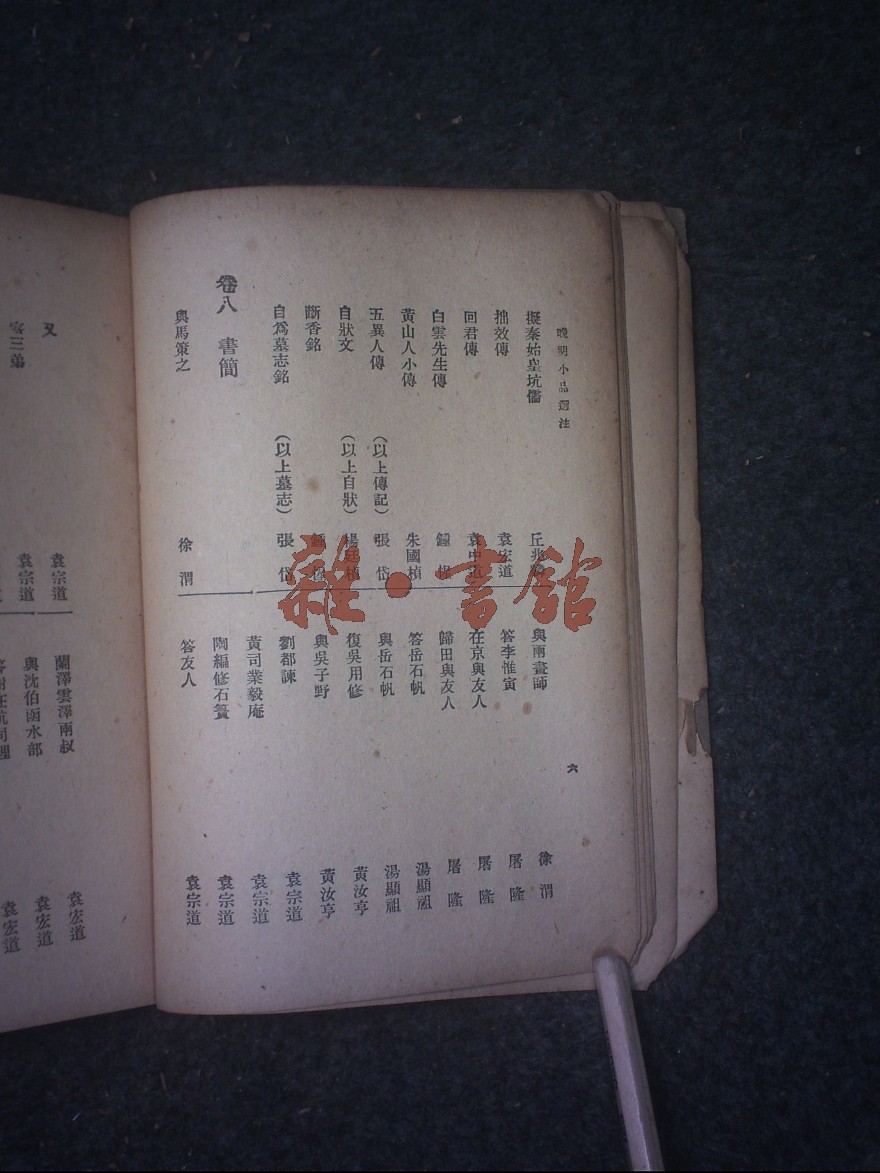 晚明小品選注
六
擬秦始皇坑儒 丘兆
拙效傳 袁宏道
回君傳 袁中道
白雲先生傳 鍾惺
黃山人小傳 朱國楨
五異人傳 (以上傳記) 張岱
自狀文 (以上自狀)
斷香銘
自爲墓志銘 (以上墓志) 張岱
卷八 書簡
與馬策之 徐渭
與兩畫師 徐渭
答李惟寅 屠隆
在京與友人 屠隆
歸田與友人 屠隆
答岳石帆 湯顯祖
與岳石帆 湯顯祖
復吳用修 黃汝亨
與吳子野 黃汝亨
劉都諫 袁宗道
黃司業毅庵 袁宗道
陶編修石簣 袁宗道
答友人 袁宗道
又 袁宗道
三弟 袁宗道
蘭澤雲澤兩叔 袁宏道
與沈伯函水部 袁宏道
袁宏道
雜·書舘